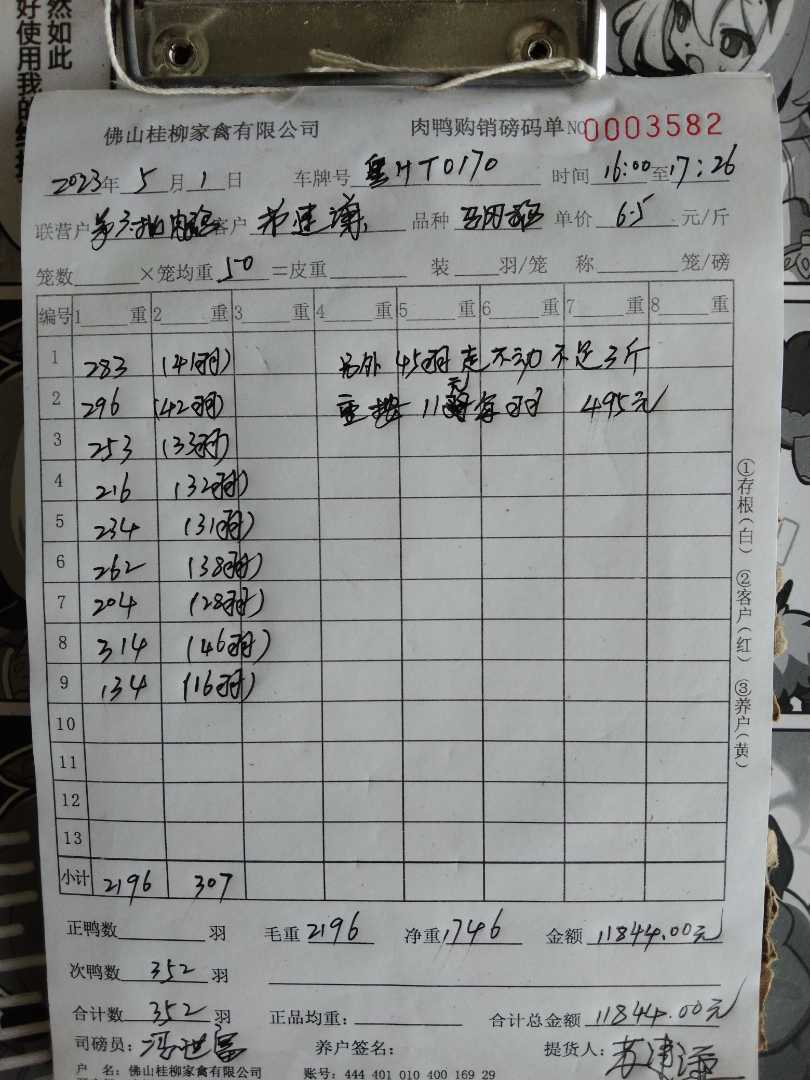 然如此
好使用我的
佛山桂柳家禽有限公司 肉鸭购销磅码单 NO 0003582
2023年 5月 1日 车牌号 粤HT0170 时间 16:00至17:26
联营户 客户 苏建谦 品种 单价 6.5 元/斤
笼数 ×笼均重 50 =皮重 装 羽/笼 称 笼/磅
编号 1 重 2 重 3 重 4 重 5 重 6 重 7 重 8 重
1 283 (41羽) 另外 45羽走不动不足3斤
2 296 (42羽) 重按 11元每羽 495元
3 253 (33羽)
4 216 (32羽)
5 234 (31羽)
6 262 (38羽)
7 204 (28羽)
8 314 (46羽)
9 134 (16羽)
10
11
12
13
小计 2196 307
正鸭数 羽 毛重 2196 净重 1746 金额 11844.00元
次鸭数 352 羽
合计数 352 羽 正品均重: 合计总金额 11844.00元
司磅员: 冯世富 养户签名: 提货人: 苏建谦
户 名: 佛山桂柳家禽有限公司 账号: 444 401 010 400 169 29
①存根(白) ②客户(红) ③养户(黄)